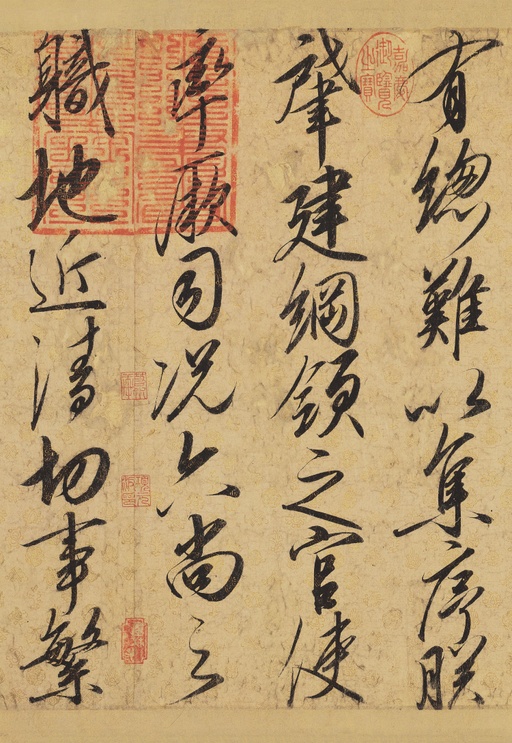 有總難以集序朕
肇建綱領之官使
率厥司况六尚之
職地近清切事繁
嘉慶御覽之寶